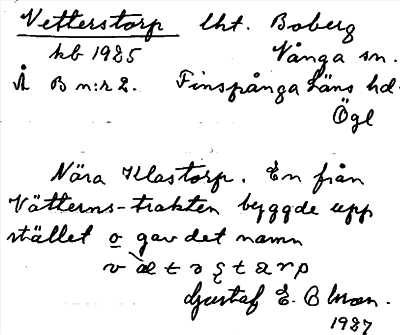 Vetterstorp lht. Boberg
kb 1925 Vånga sn.
Å B n:r 2. Finspånga Läns hd.
Ögl
Nära Klastorp. En från
Vätterns-trakten byggde upp
stället o gav det namn
Gustaf E. Blman.
1927